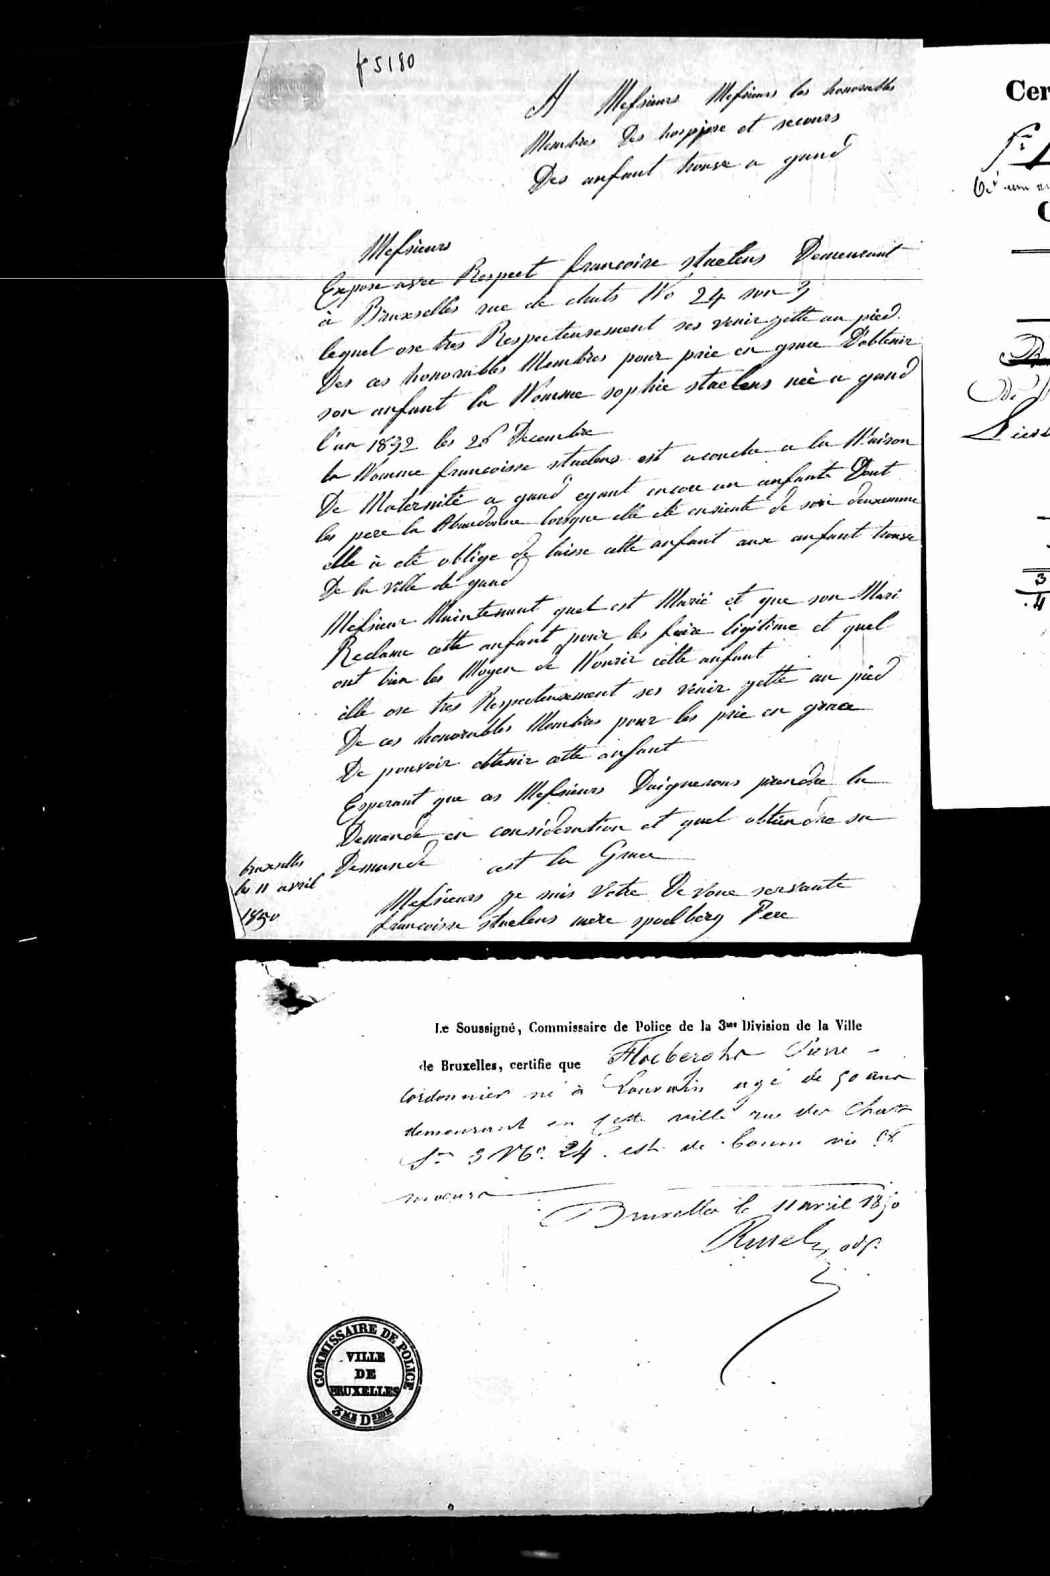 5180
A Messieurs Messieurs les honorables
Membres Des hospise et secours
Des anfant trouve a gand
Messieurs
Expose avec Respect francoise staelens Demeurant
à Bruxelles rue de chats No 24 son 3
lequel ose tres Respecteusement ses venir jette au pied
Des ces honorables Membres pour prie en grace D'obtenir
son anfant la Nomme sophie staelens née a gand
l'an 1832 les 26 Decembre
la Nomme francoisse staelens est acouche a la Maison
De Maternité a gand eyant encore un anfant Dont
les pere la Abandonne lorsque elle eté ensiente de son deuxemme
elle à eté oblige de laisse cette anfant aux anfant trouve
De la ville de gand
Messieur Maintenant quel est Marié et que son Mari
Reclame cette anfant pour les faire legitime et quel
ont bien les Moyen de Nourir cette anfant
elle ose tres Respecteusement ses venir jette au pied
De ces honorables Membres pour les prie en grace
De pouvoir obtenir cette anfant
Esperant que ces Messieurs Daignerons prendre la
Demande en considération et quel obtiendre sa
Demande cest la Grace
bruxelles
les 11 avril
1850
Messieurs je suis Votre De voue servante
francoisse staelens mere spoelberg Pere
Le Soussigné, Commissaire de Police de la 3me Division de la Ville
de Bruxelles, certifie que Pierre
cordonnier né à Louvain agé de 50 ans
demeurant en cette ville rue des Chats
Son 3 No. 24. est de bonne vie et
moeurs
Bruxelles le 11 avril 1850
COMMISSAIRE DE POLICE
VILLE
DE
BRUXELLES
3ME DSION
Cer
3
4